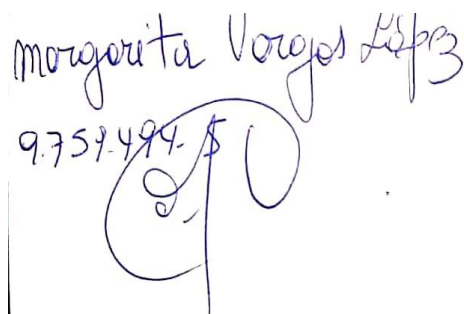 Margarita Vargas López
9.751.494-5